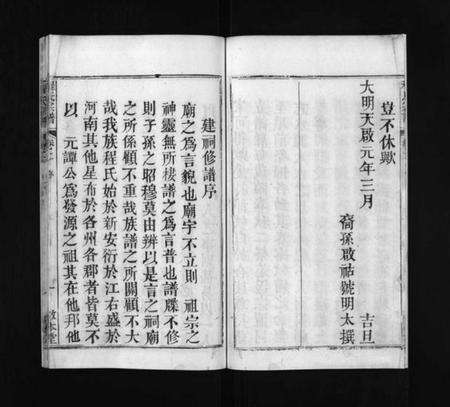 豈不休歟
大明天啟元年三月
吉旦
裔孫啟祜號明太撰
建祠修譜序
廟之為言貌也廟宇不立則 祖宗之
神靈無所棲譜之為言普也譜牒不修
則子孫之昭穆莫由辨以是言之祠廟
之所係顧不重哉族譜之所關顧不大
哉我族程氏始於新安衍於江右盛於
河南其他星布於各州各郡者皆莫不
以 元譚公為發源之祖其在他邦他